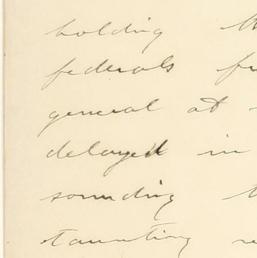 holding
federals
general at
delayed in
sounding
taunting